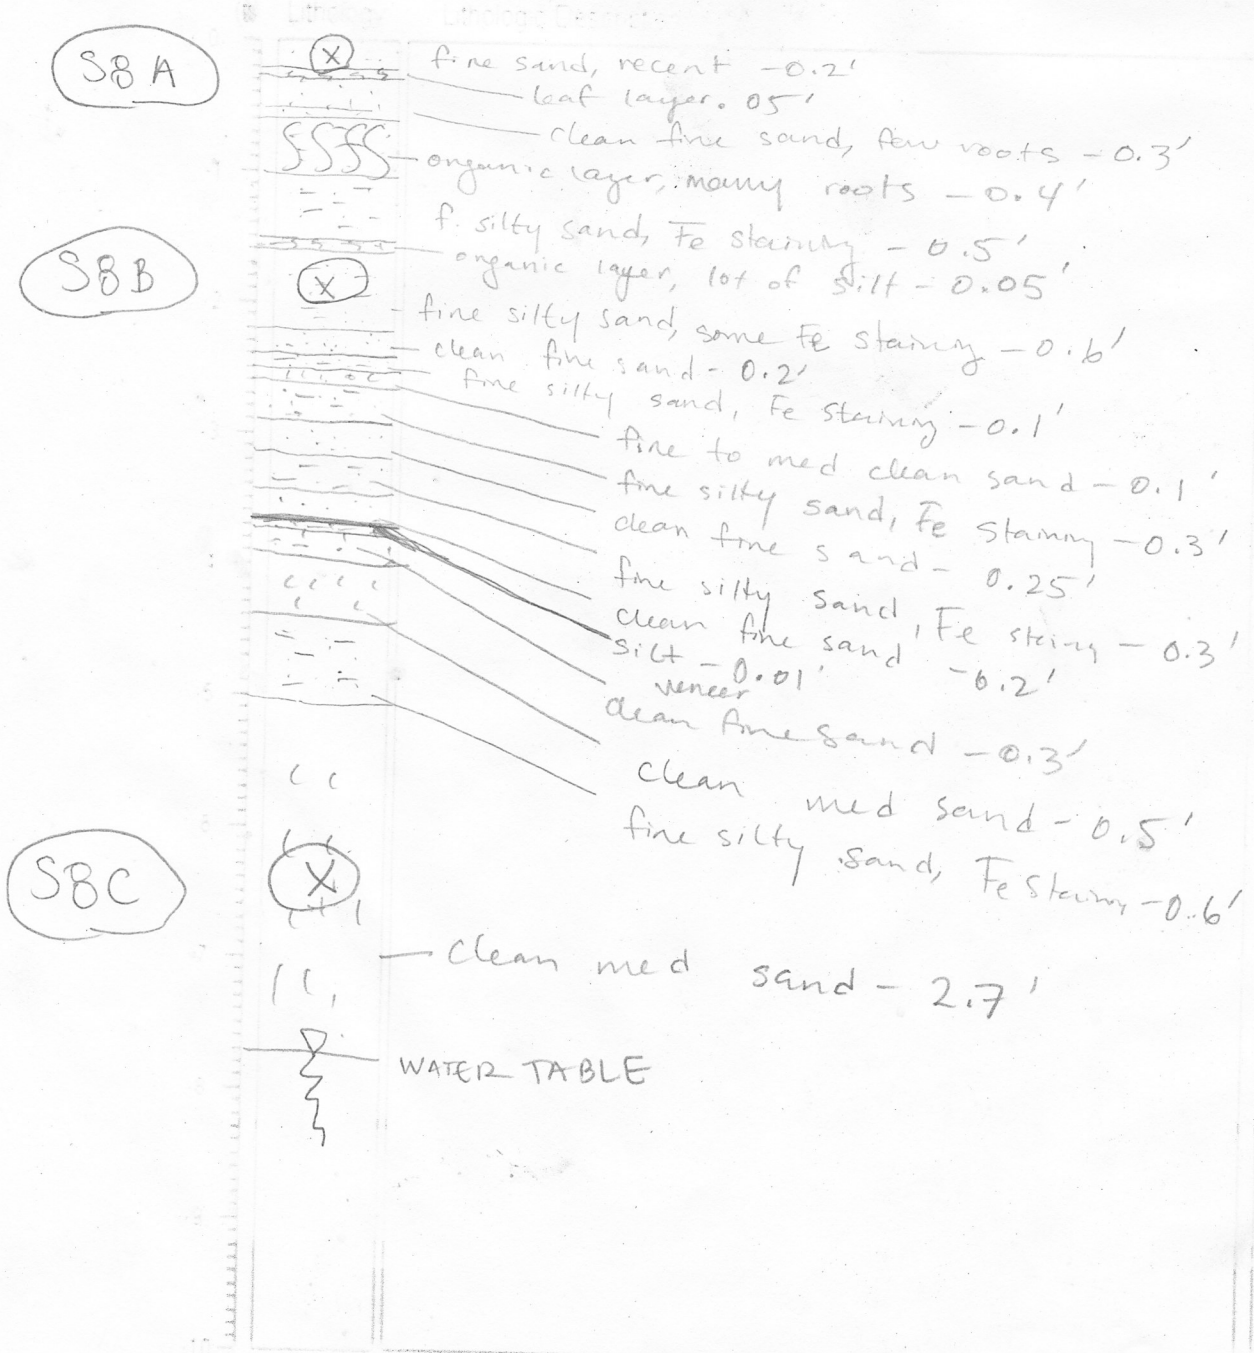 Lithology Lithologic Descript
S8A
X
fine sand, recent - 0.2'
leaf layer .05'
clean fine sand, few roots - 0.3'
organic layer, many roots - 0.4'
f. silty sand, Fe staining - 0.5'
S8B
organic layer, lot of silt - 0.05'
X
fine silty sand, some Fe staining - 0.6'
clean fine sand - 0.2'
fine silty sand, Fe staining - 0.1'
fine to med clean sand - 0.1'
fine silty sand, Fe staining - 0.3'
clean fine sand - 0.25'
fine silty sand, Fe staing - 0.3'
clean fine sand - 0.2'
silt - 0.01'
veneer
clean fine sand - 0.3'
clean med sand - 0.5'
fine silty sand, Fe staining - 0.6'
S8C
X
clean med sand - 2.7'
WATER TABLE